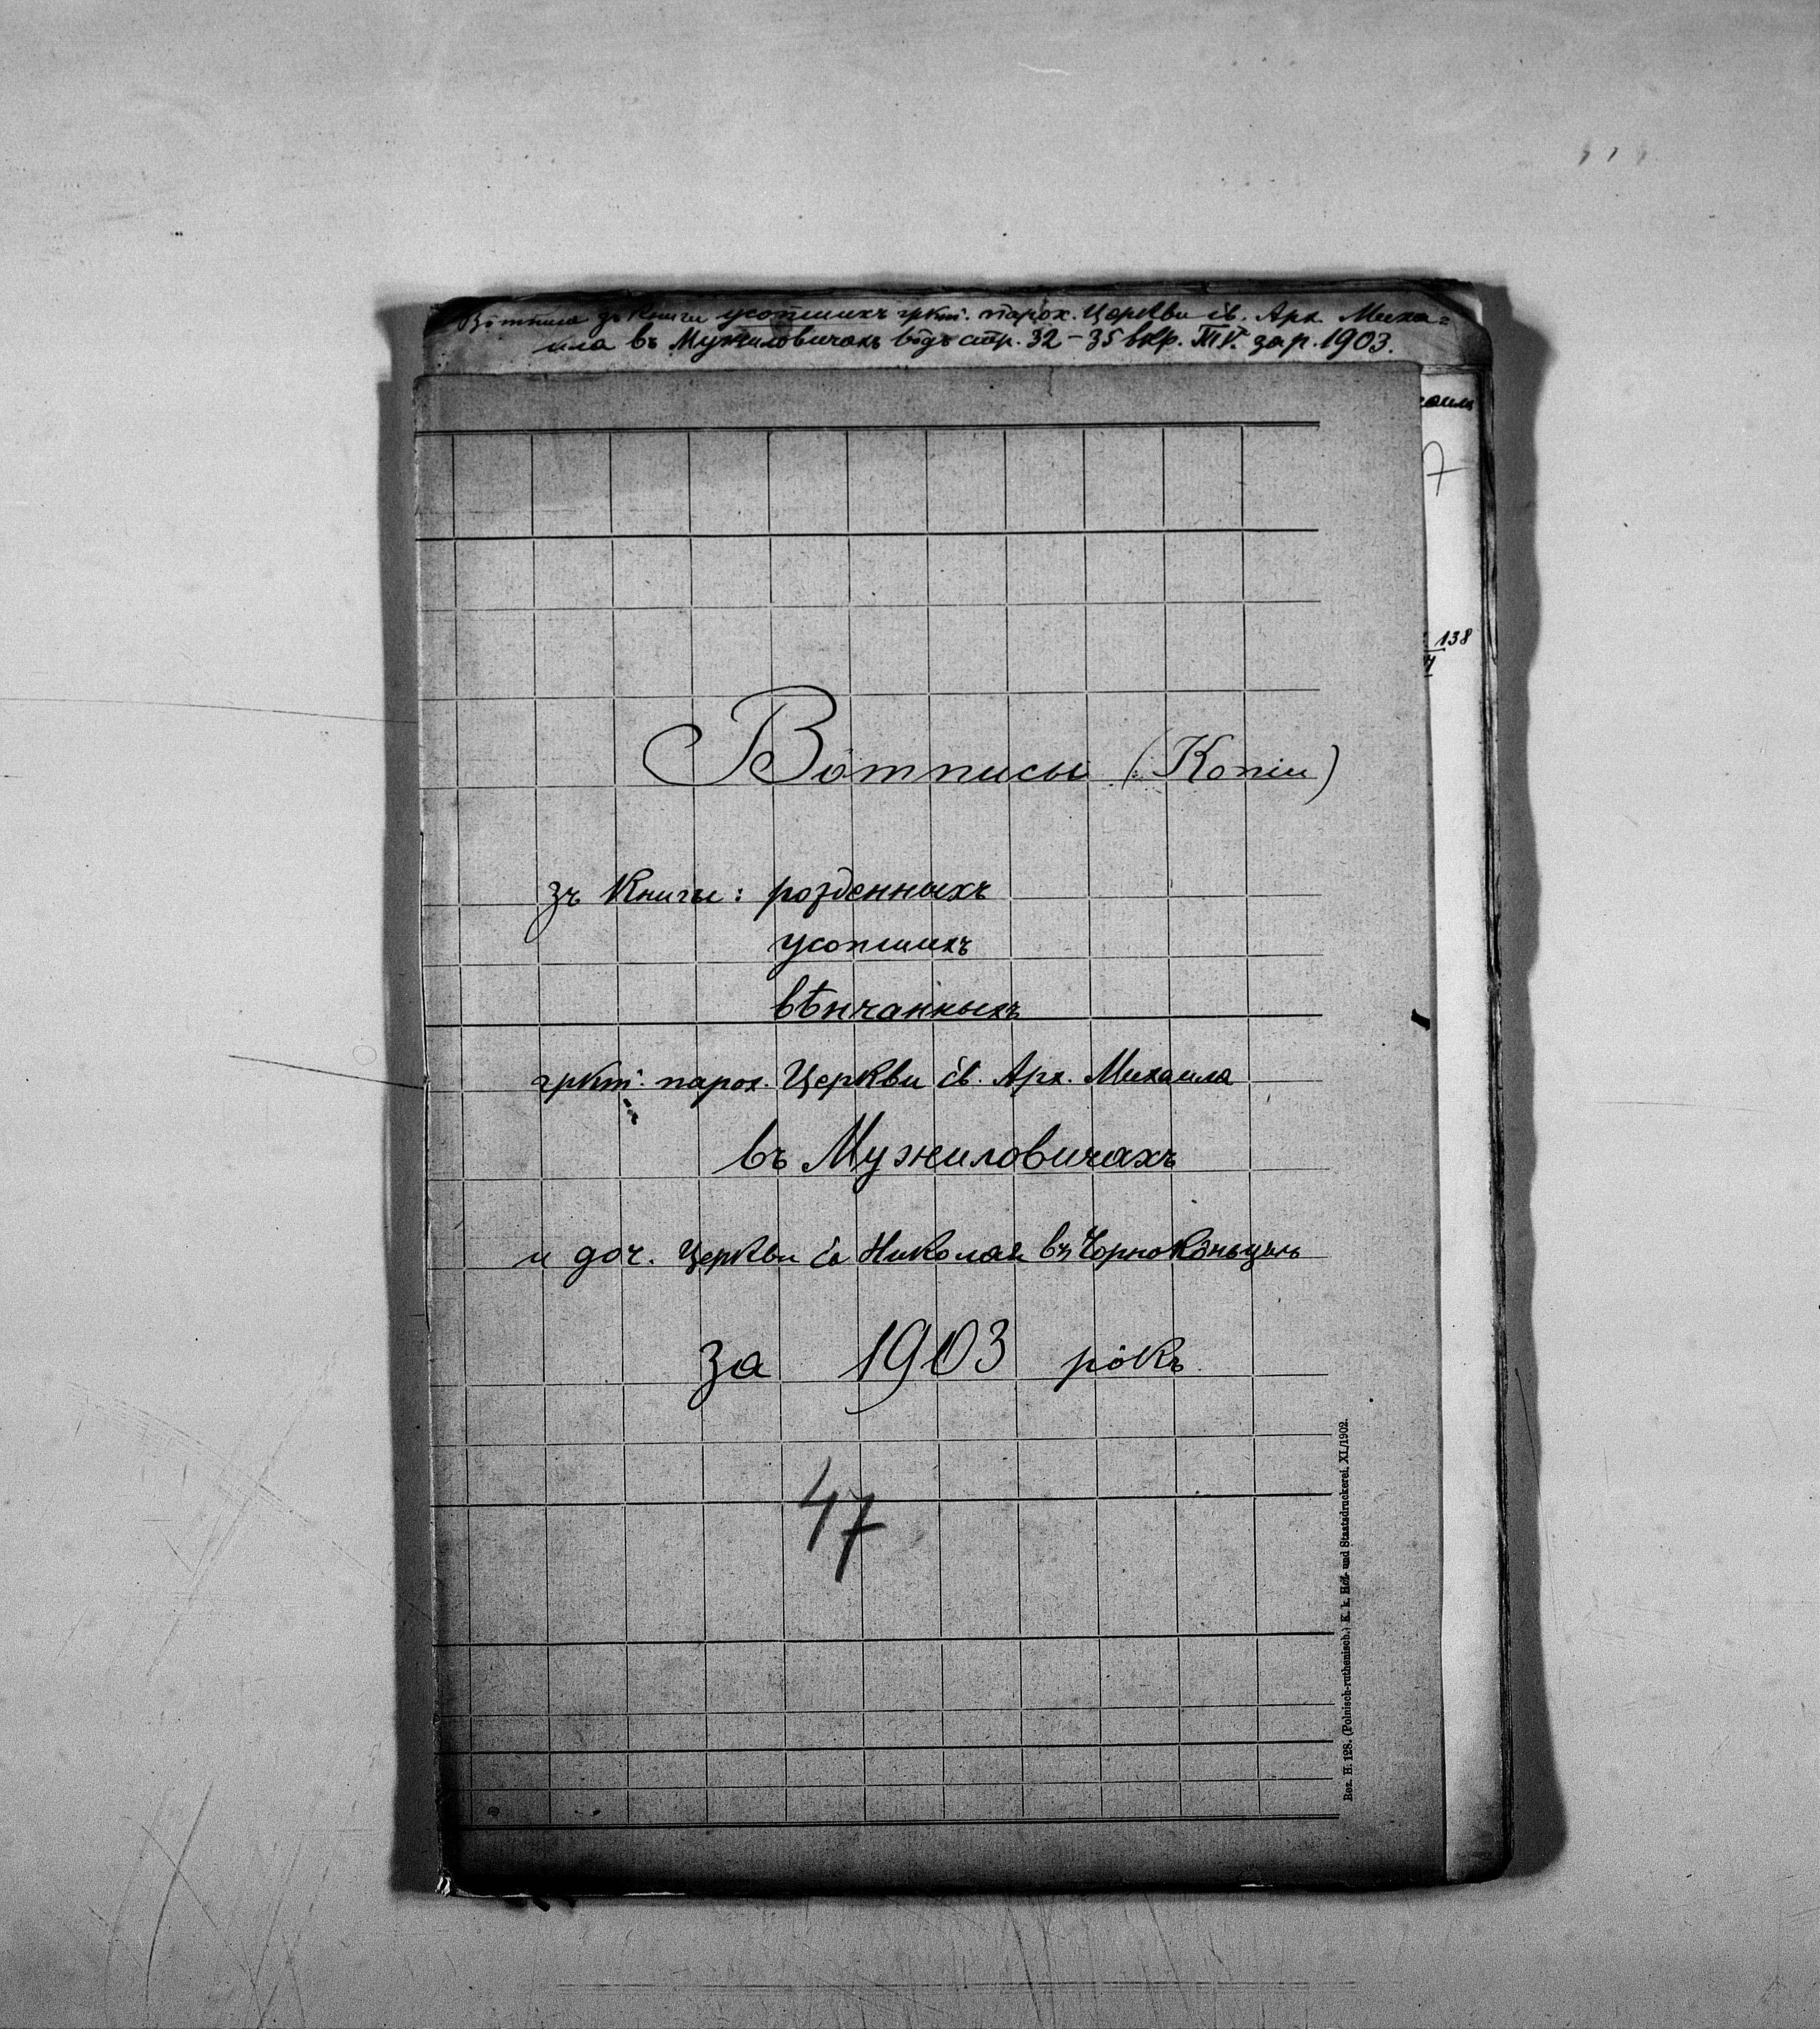 Вôтписъ зъ Книги усопшихъ гркт. парох. Церкви св. Арх. Миха=
ила въ Мужиловичахъ вôдъ стр. 32–35 вкр. за р. 1903.
138
Вôтписы (: Копіи)
зъ Книгы: розденныхъ
усопшихъ
вѣнчанныхъ
гркт. парох. Церкви св. Арх. Михаила
въ Мужиловичахъ
и доч. Церкви св Николая въ Чорнокôньцяхъ
за 1903 рôкъ.
47
Bez. H. 128. (Polnisch-ruthenisch.) K. k. Hof- und Staatsdruckerei. XI./1902.